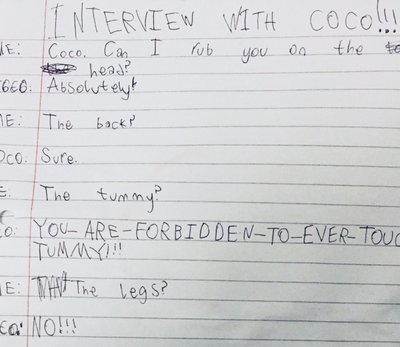 INTERVIEW WITH COCO!!!
ME: Coco. Can I rub you on the
head?
Absolutely!
ME: The back?
OCO: Sure.
E: The tummy?
O: YOU-ARE-FORBIDDEN-TO-EVER-TOUC
TUMMY!!!
ME: The legs?
NO!!!